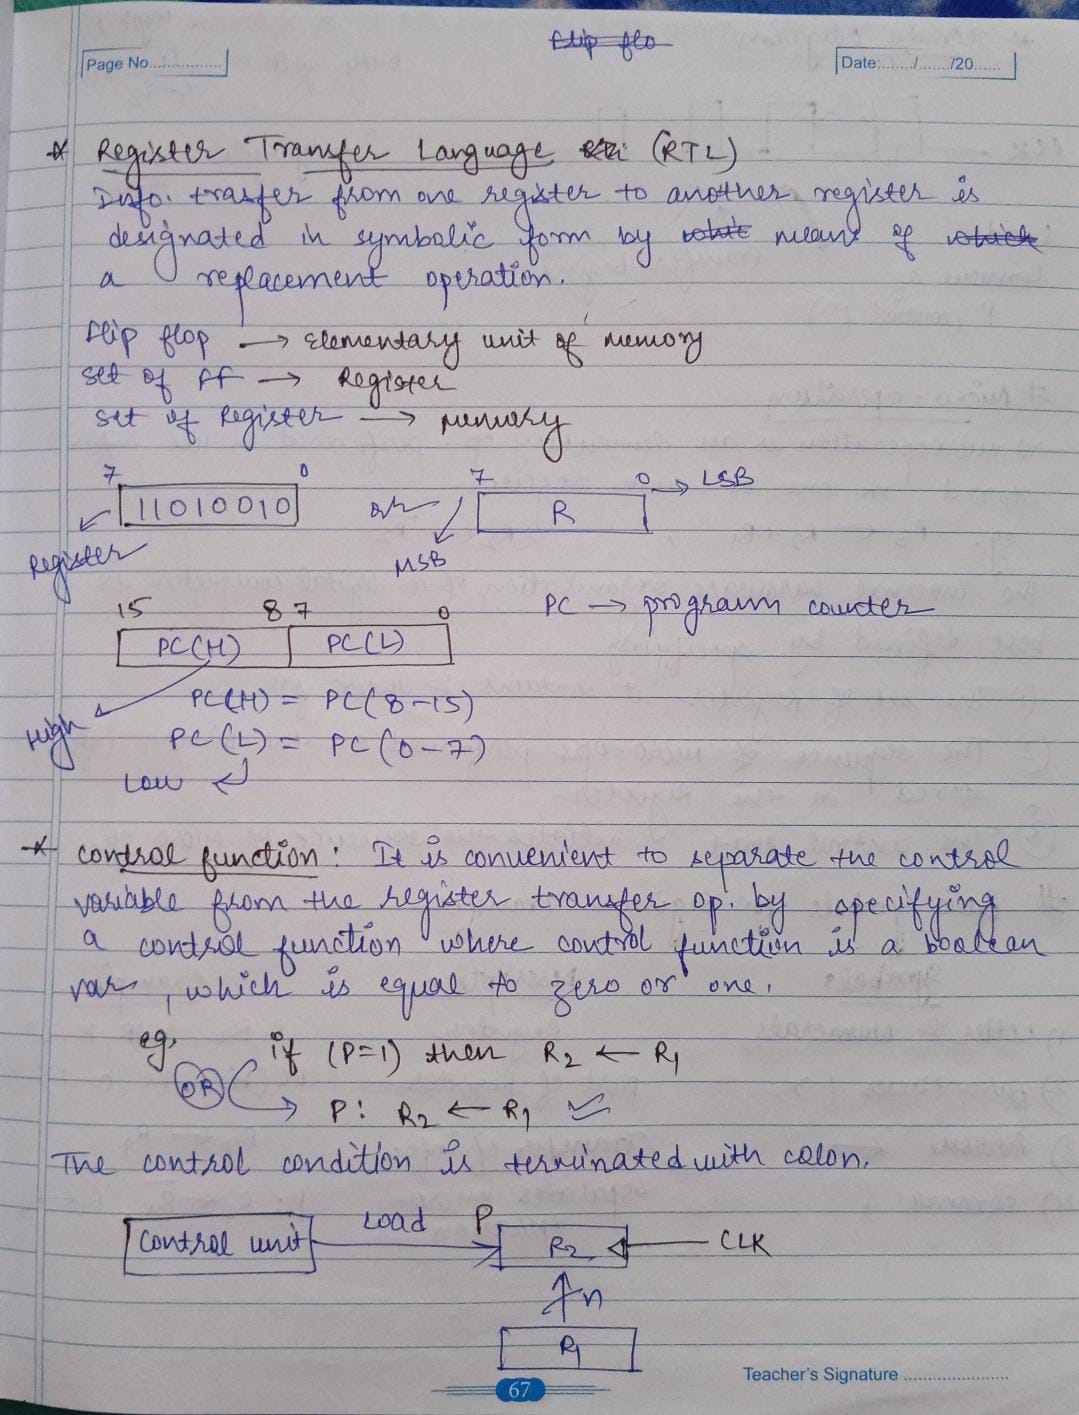 flip flo
Page No..................
Date:......./......./20......
* Register Transfer Language (RTL)
Info. trasfer from one register to another register is
designated in symbolic form by means of which
a replacement operation.
flip flop → Elementary unit of memory
set of FF → Register
set of Register → memory
7 0 7 0 → LSB
11010010 or R
Register MSB
15 8 7 0 PC → program counter
PC(H) PC(L)
PC(H) = PC(8-15)
High PC(L) = PC(0-7)
Low
* control function: It is convenient to separate the control
variable from the register transfer op. by specifying
a control function where control function is a boolean
var, which is equal to zero or one.
eg. if (P=1) then R2 ← R1
OR P: R2 ← R1
The control condition is terminated with colon.
Control unit Load P R2 CLK
n
R1
Teacher's Signature ........................
67